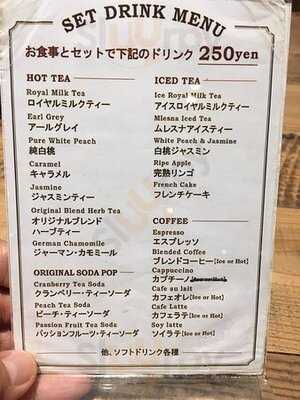 SET DRINK MENU
お食事とセットで下記のドリンク 250yen
HOT TEA
Royal Milk Tea
ロイヤルミルクティー
Earl Grey
アールグレイ
Pure White Peach
純白桃
Caramel
キャラメル
Jasmine
ジャスミンティー
Original Blend Herb Tea
オリジナルブレンド
ハーブティー
German Chamomile
ジャーマン・カモミール
ORIGINAL SODA POP
Cranberry Tea Soda
クランベリー・ティーソーダ
Peach Tea Soda
ピーチ・ティーソーダ
Passion Fruit Tea Soda
パッションフルーツ・ティーソーダ
ICED TEA
Ice Royal Milk Tea
アイスロイヤルミルクティー
Mlesna Iced Tea
ムレスナアイスティー
White Peach & Jasmine
白桃ジャスミン
Ripe Apple
完熟リンゴ
French Cake
フレンチケーキ
COFFEE
Espresso
エスプレッソ
Blended Coffee
ブレンドコーヒー【Ice or Hot】
Cappuccino
カプチーノ【Ice or Hot】
Cafe au lait
カフェオレ【Ice or Hot】
Cafe Latte
カフェラテ【Ice or Hot】
Soy latte
ソイラテ【Ice or Hot】
他、ソフトドリンク各種